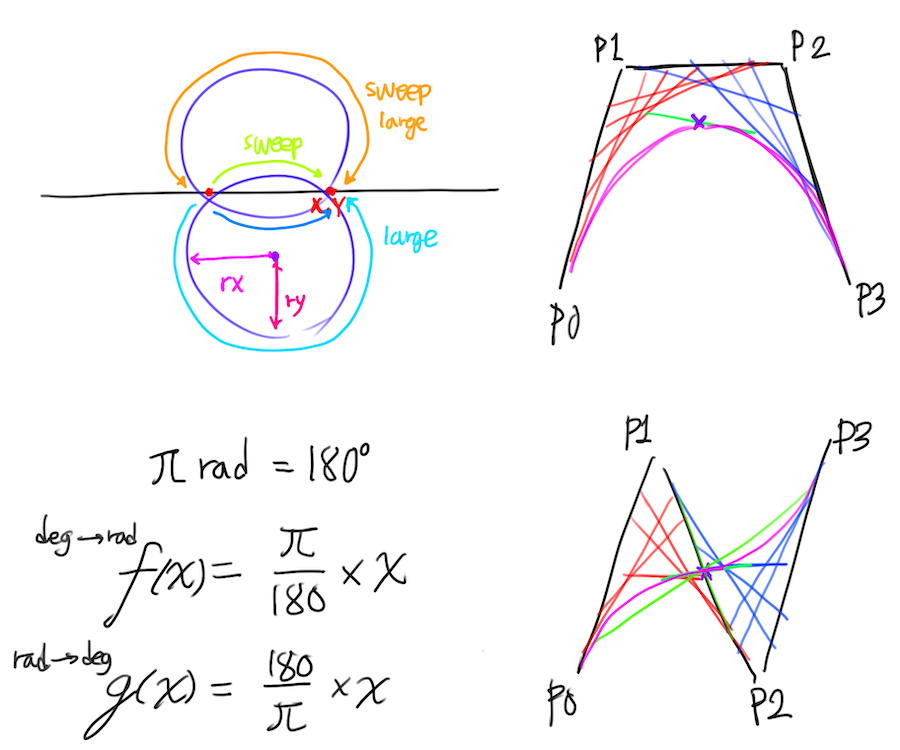 sweep
large
sweep
X, Y
large
rx
ry
P1
P2
P0
P3
π rad = 180°
deg→rad
f(x) = π/180 × x
rad→deg
g(x) = 180/π × x
P1
P3
P0
P2